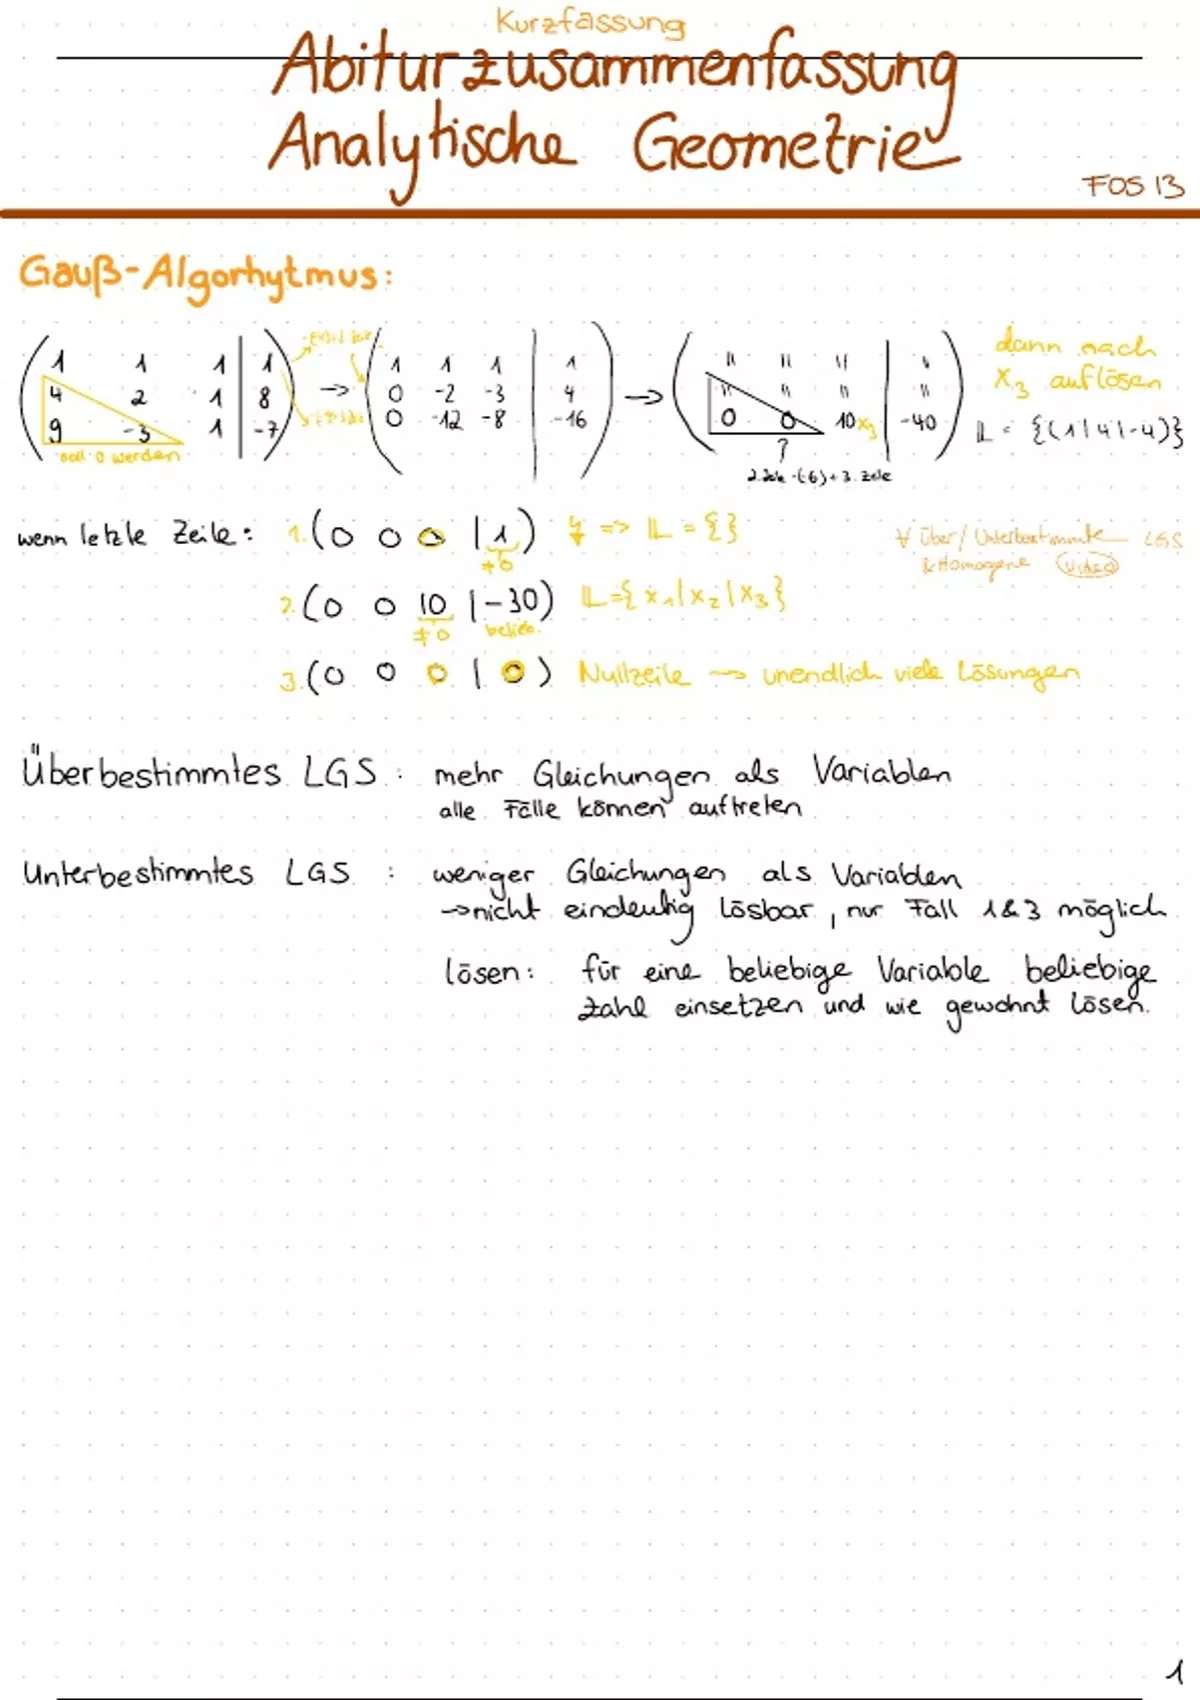 Kurzfassung
Abiturzusammenfassung
Analytische Geometrie
FOS 13
Gauß-Algorhytmus:
1 1 1 | 1
4 2 1 | 8
9 -3 1 | -7
soll 0 werden
→
1 1 1 | 1
0 -2 -3 | 4
0 -12 -8 | -16
→
" " " | "
" " " | "
0 0 10 x₃ | -40
?
2. Zeile ·(-6)+3. Zeile
dann nach
x₃ auflösen
𝕃 = {(1|4|-4)}
wenn letzte Zeile: 1. (0 0 0 | 1) ↯ => 𝕃 = {}
≠0
Über/Unterbestimmte LGS
& Homogene Video
2. (0 0 10 | -30) 𝕃={x₁|x₂|x₃}
≠0 belieb.
3. (0 0 0 | 0) Nullzeile → unendlich viele Lösungen
Überbestimmtes LGS: mehr Gleichungen als Variablen
alle Fälle können auftreten
Unterbestimmtes LGS : weniger Gleichungen als Variablen
→nicht eindeutig lösbar, nur Fall 1&3 möglich
lösen: für eine beliebige Variable beliebige
Zahl einsetzen und wie gewohnt lösen.
1